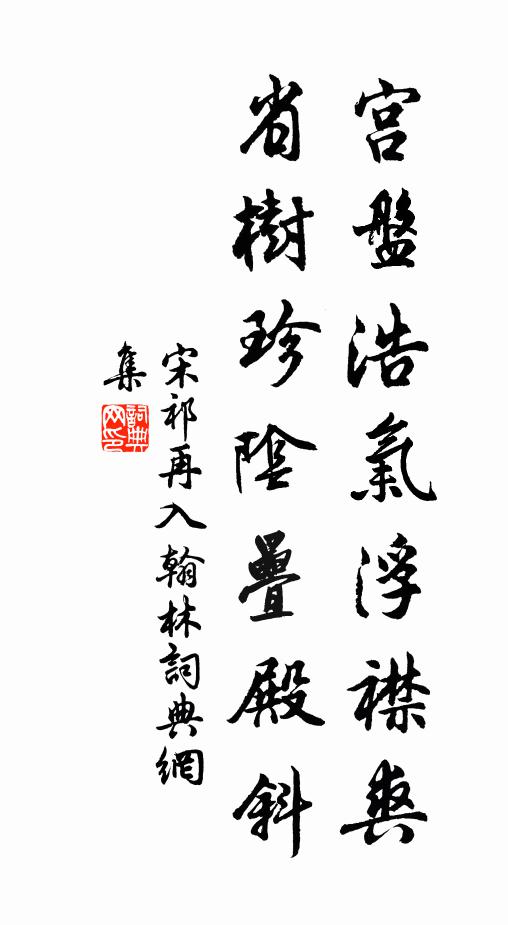 宮盤浩氣浮襟爽
省樹珍陰疊殿斜
宋祁再入翰林詞典網
集
詞典网印